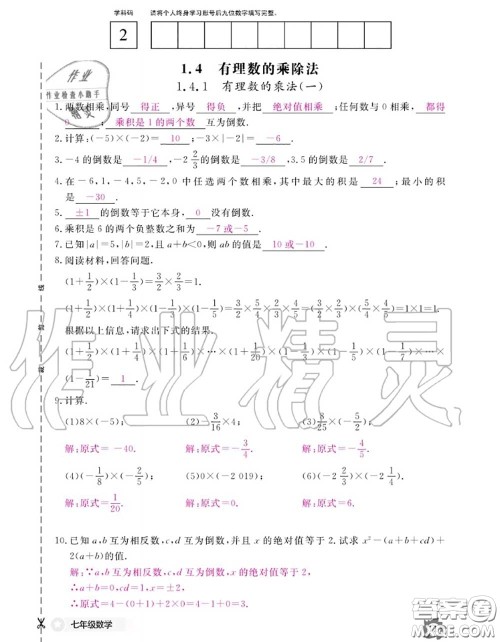 学科码 请将个人终身学习账号后九位数字填写完整。
2
1.4 有理数的乘除法
1.4.1 有理数的乘法(一)
作业
作业检查小助手
精灵
1.两数相乘,同号 得正 ,异号 得负 ,并把 绝对值相乘 ;任何数与0相乘, 都得
0 ; 乘积是1的两个数 互为倒数.
2.计算:(-5)×(-2)= 10 ;-3×|-2|= -6 .
3.-4的倒数是 -1/4 ,-2 2/3 的倒数是 -3/8 ,3.5的倒数 2/7 .
4.在-6,1,-4,5,-2,0中任选两个数相乘,其中最大的积是 24 ;最小的积
是 -30 .
5. ±1 的倒数等于它本身, 0 没有倒数.
6.乘积是6的两个负整数之和为 -7或-5 .
7.已知|a|=5,|b|=2,且a+b<0,则ab的值是 10或-10 .
8.阅读材料,回答问题.
(1+1/2)×(1-1/3)=3/2×2/3=1.
(1+1/2)×(1+1/4)×(1-1/3)×(1-1/5)=3/2×5/4×2/3×4/5=3/2×2/3×5/4×4/5=1×1=1.
根据以上信息,请求出下式的结果.
(1+1/2)×(1+1/4)×(1+1/6)×⋯×(1+1/20)×(1-1/3)×(1-1/5)×(1-1/7)×⋯×
(1-1/21)= 1 .
9.计算.
(1)8×(-5); (2)3/16×4; (3)8/25×(-5/2);
解:原式=-40. 解:原式=3/4. 解:原式=-4/5.
(4)(-1/8)×(-2/5); (5)0×(-2 019); (6)(-3 1/4)×(-1 11/13).
解:原式=1/20. 解:原式=0. 解:原式=6.
10.已知a,b互为相反数,c,d互为倒数,并且x的绝对值等于2.试求x²-(a+b+cd)+
2(a+b)的值.
解:∵a,b互为相反数,c,d互为倒数,并且x的绝对值等于2,
∴a+b=0,cd=1,x=±2,
∴原式=4-(0+1)+2×0=4-1+0=3.
七年级数学
作业精灵
答案圈
MXQE.COM